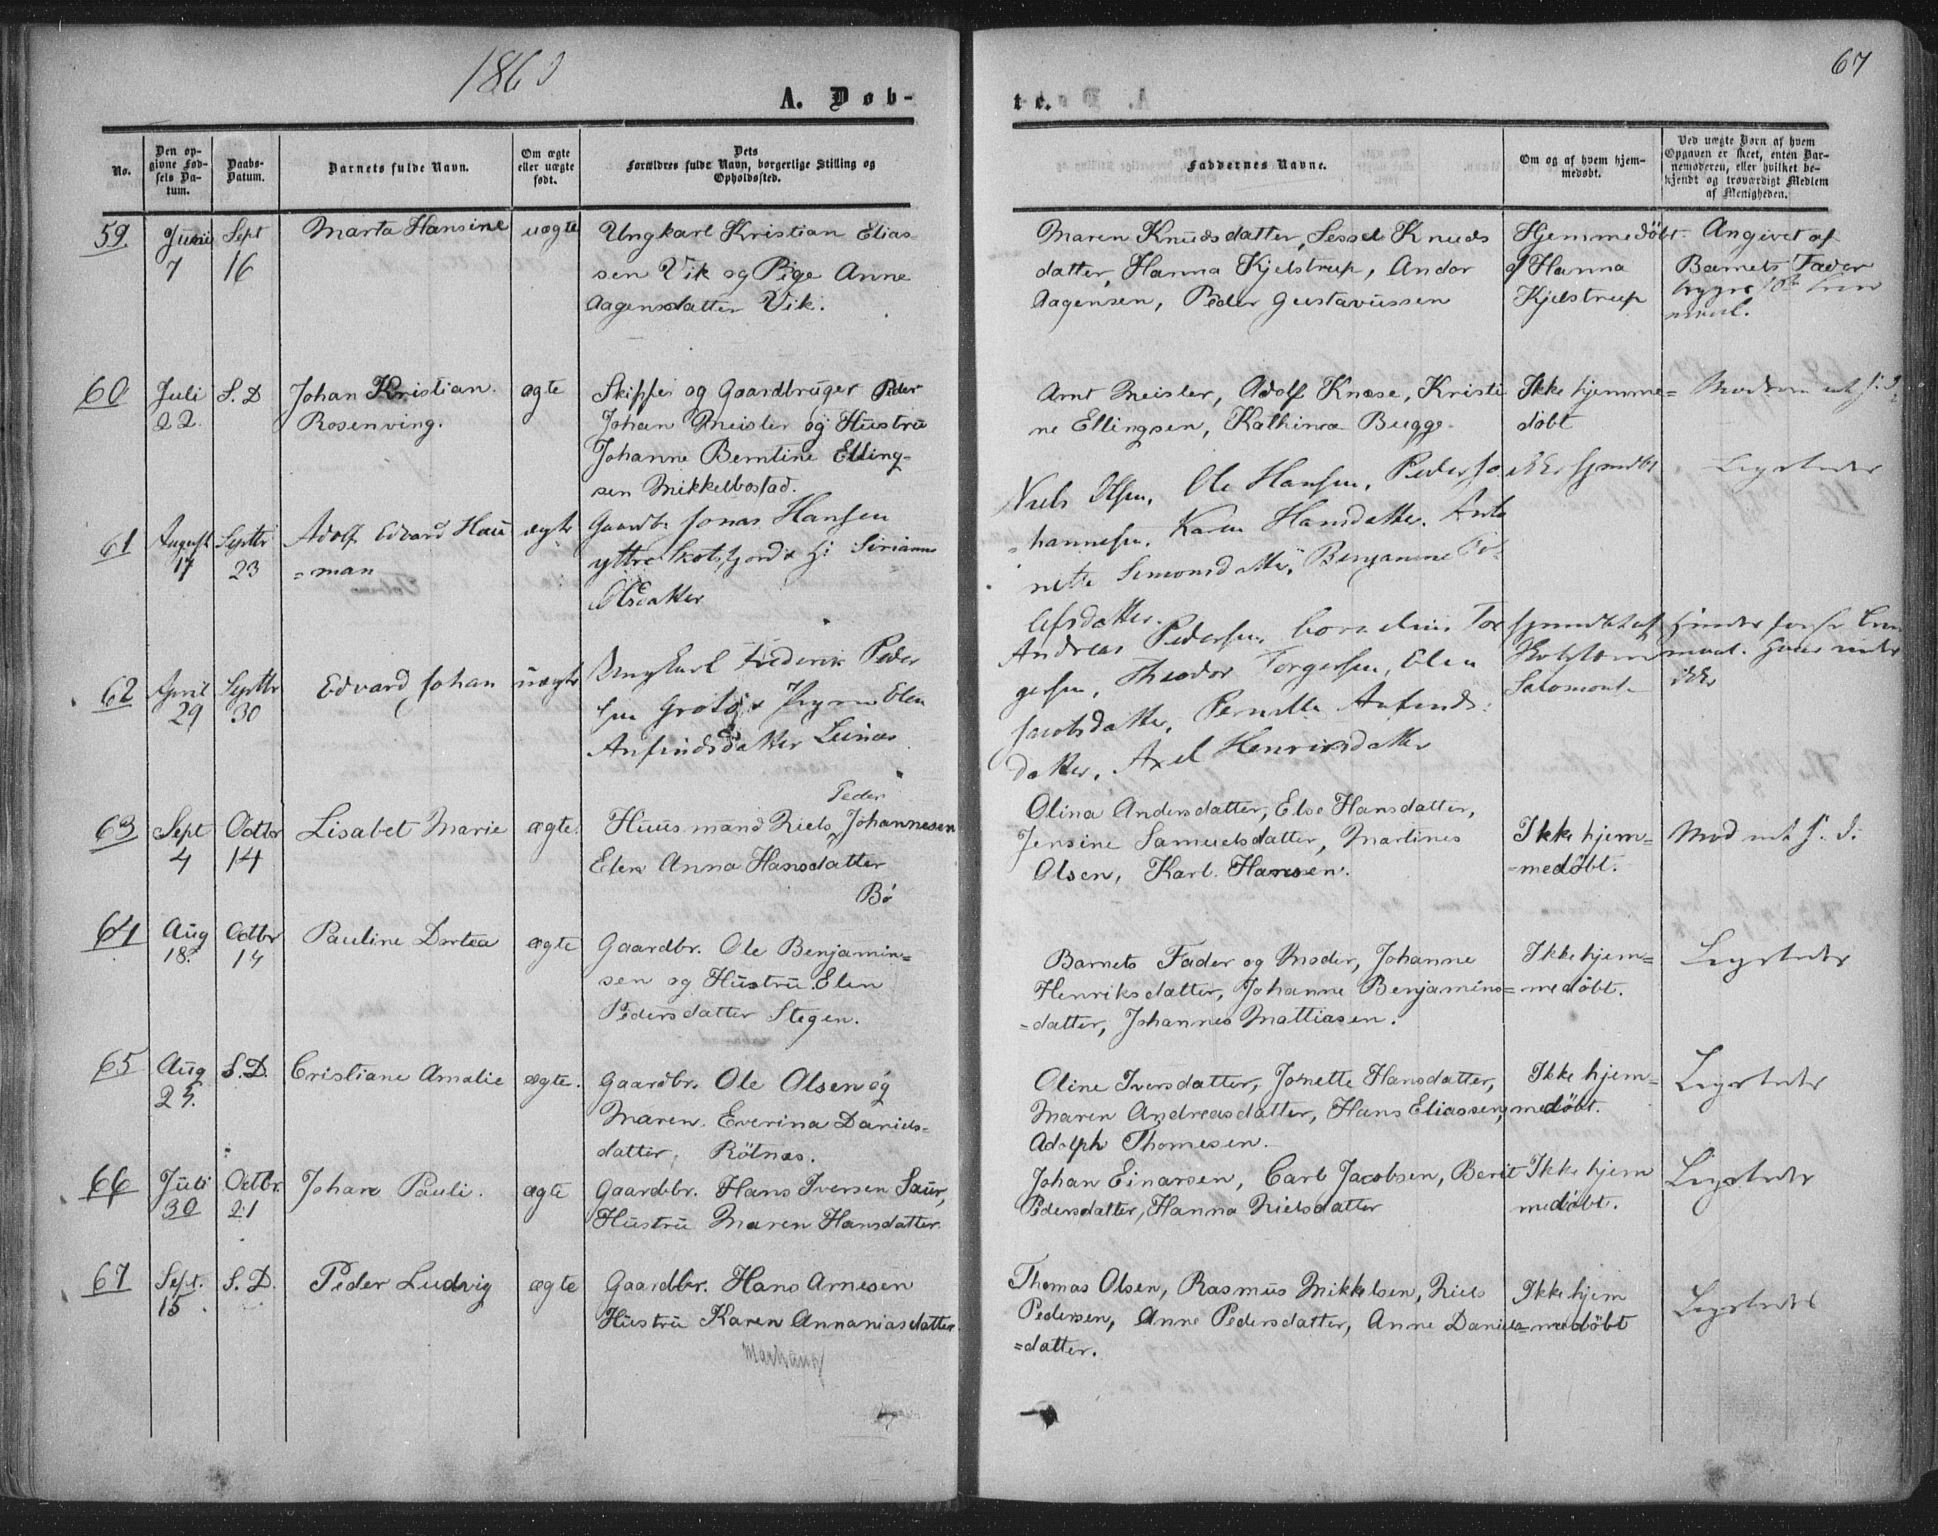 1860
67
A. Døb-
te.
No.
Den op-
givne Fød-
sels Da-
tum.
Daabs-
Datum.
Barnets fulde Navn.
Om ægte
eller uægte
født.
Dets
Forældres fulde Navn, borgerlige Stilling og
Opholdssted.
Faddernes Navne.
Om og af hvem hjem-
medøbt.
Ved uægte Børn af hvem
Opgaven er skeet, enten Bar-
nemoderen, eller hvilket be-
kjendt og troværdigt Medlem
af Menigheden.
59
Juni
7
Sept
16
Marta Hansine
uægte
Ungkarl Kristian Elias
sen Vik og Pige Anne
Aagensdatter Vik.
Maren Knudsdatter, Sessel Knuds
datter, Hanna Kjelstrup, Andor
Aagensen, Peder Gustavussen
Hjemmedöbt
af Hanna
Kjelstrup
Angivet af
Barnets Fader
60
Juli
22
S. D
Johan Kristian
Rosenving.
ægte
Skipper og Gaardbruger Peder
Johan Meisler og Hustru
Johanne Berntine Elling-
sen Mikkelbostad.
Arnt Meisler, Adolf Knæse, Kristi
ne Ellingsen, Kathinca Bugge
Ikke hjemme=
döbt
61
August
17
Septbr
23
Adolf Edvard Hau
=man
ægte
Gaardb. Jonas Hansen
yttre Skotsfjord & H:
Olsdatter
Niels Olsen, Ole Hansen, Peder Jo
hannesen, Karen Hansdatter, Anto
nette Simonsdatter, Benjamine To-
lefsdatter.
62
April
29
Septbr
30
Edvard Johan
uægte
Ungkarl Frederik Peder
sen Grotö & Pige Elen
Anfindsdatter Leines
Andreas Pedersen, Cornelius Tor
gersen, Theodor Torgersen, Elen
Jacobsdatter, Pernille Anfinds:
datter, Axel Henriksdatter
63
Sept
4
Octbr
14
Lisabet Marie
ægte.
Peder
Huusmand Niels Johannesen
Elen Anna Hansdatter
Bö
Olina Andersdatter, Else Hansdatter,
Jensine Samuelsdatter, Martines
Olsen, Karl Hansen.
Ikke hjem=
=medöbt.
64
Aug
18.
Octbr
14
Pauline Dortea
ægte
Gaardbr. Ole Benjamin=
sen og Hustru Elen
Pedersdatter Stegen.
Barnets Fader og Moder, Johanne
Henriksdatter, Johanne Benjamins=
=datter, Johannes Mattiasen.
Ikke hjem=
medöbt.
65
Aug
25.
S. D.
Cristiane Amalie
ægte.
Gaardbr. Ole Olsen og
Maren Everina Daniels-
datter. Rötnæs.
Oline Iversdatter, Jonette Hansdatter,
Maren Andreasdatter, Hans Eliassen,
Adolph Thomesen.
Ikke hjem=
medöbt.
66
Juli
30
Octbr.
21
Johan Pauli.
ægte
Gaardbr. Hans Iversen Saur,
Hustru Maren Hansdatter
Johan Einarsen, Carl Jacobsen, Berit
Pedersdatter, Hanna Nielsdatter
Ikke hjem
medöbt.
67
Sept.
15
S. D.
Peder Ludvig
ægte
Gaardbr. Hans Arnesen
Hustru Karen Annaniasdatter
Thomas Olsen, Rasmus Mikkelsen, Niels
Pedersen, Anne Pedersdatter, Anne Daniels=
=datter.
Ikke hjem
medöbt